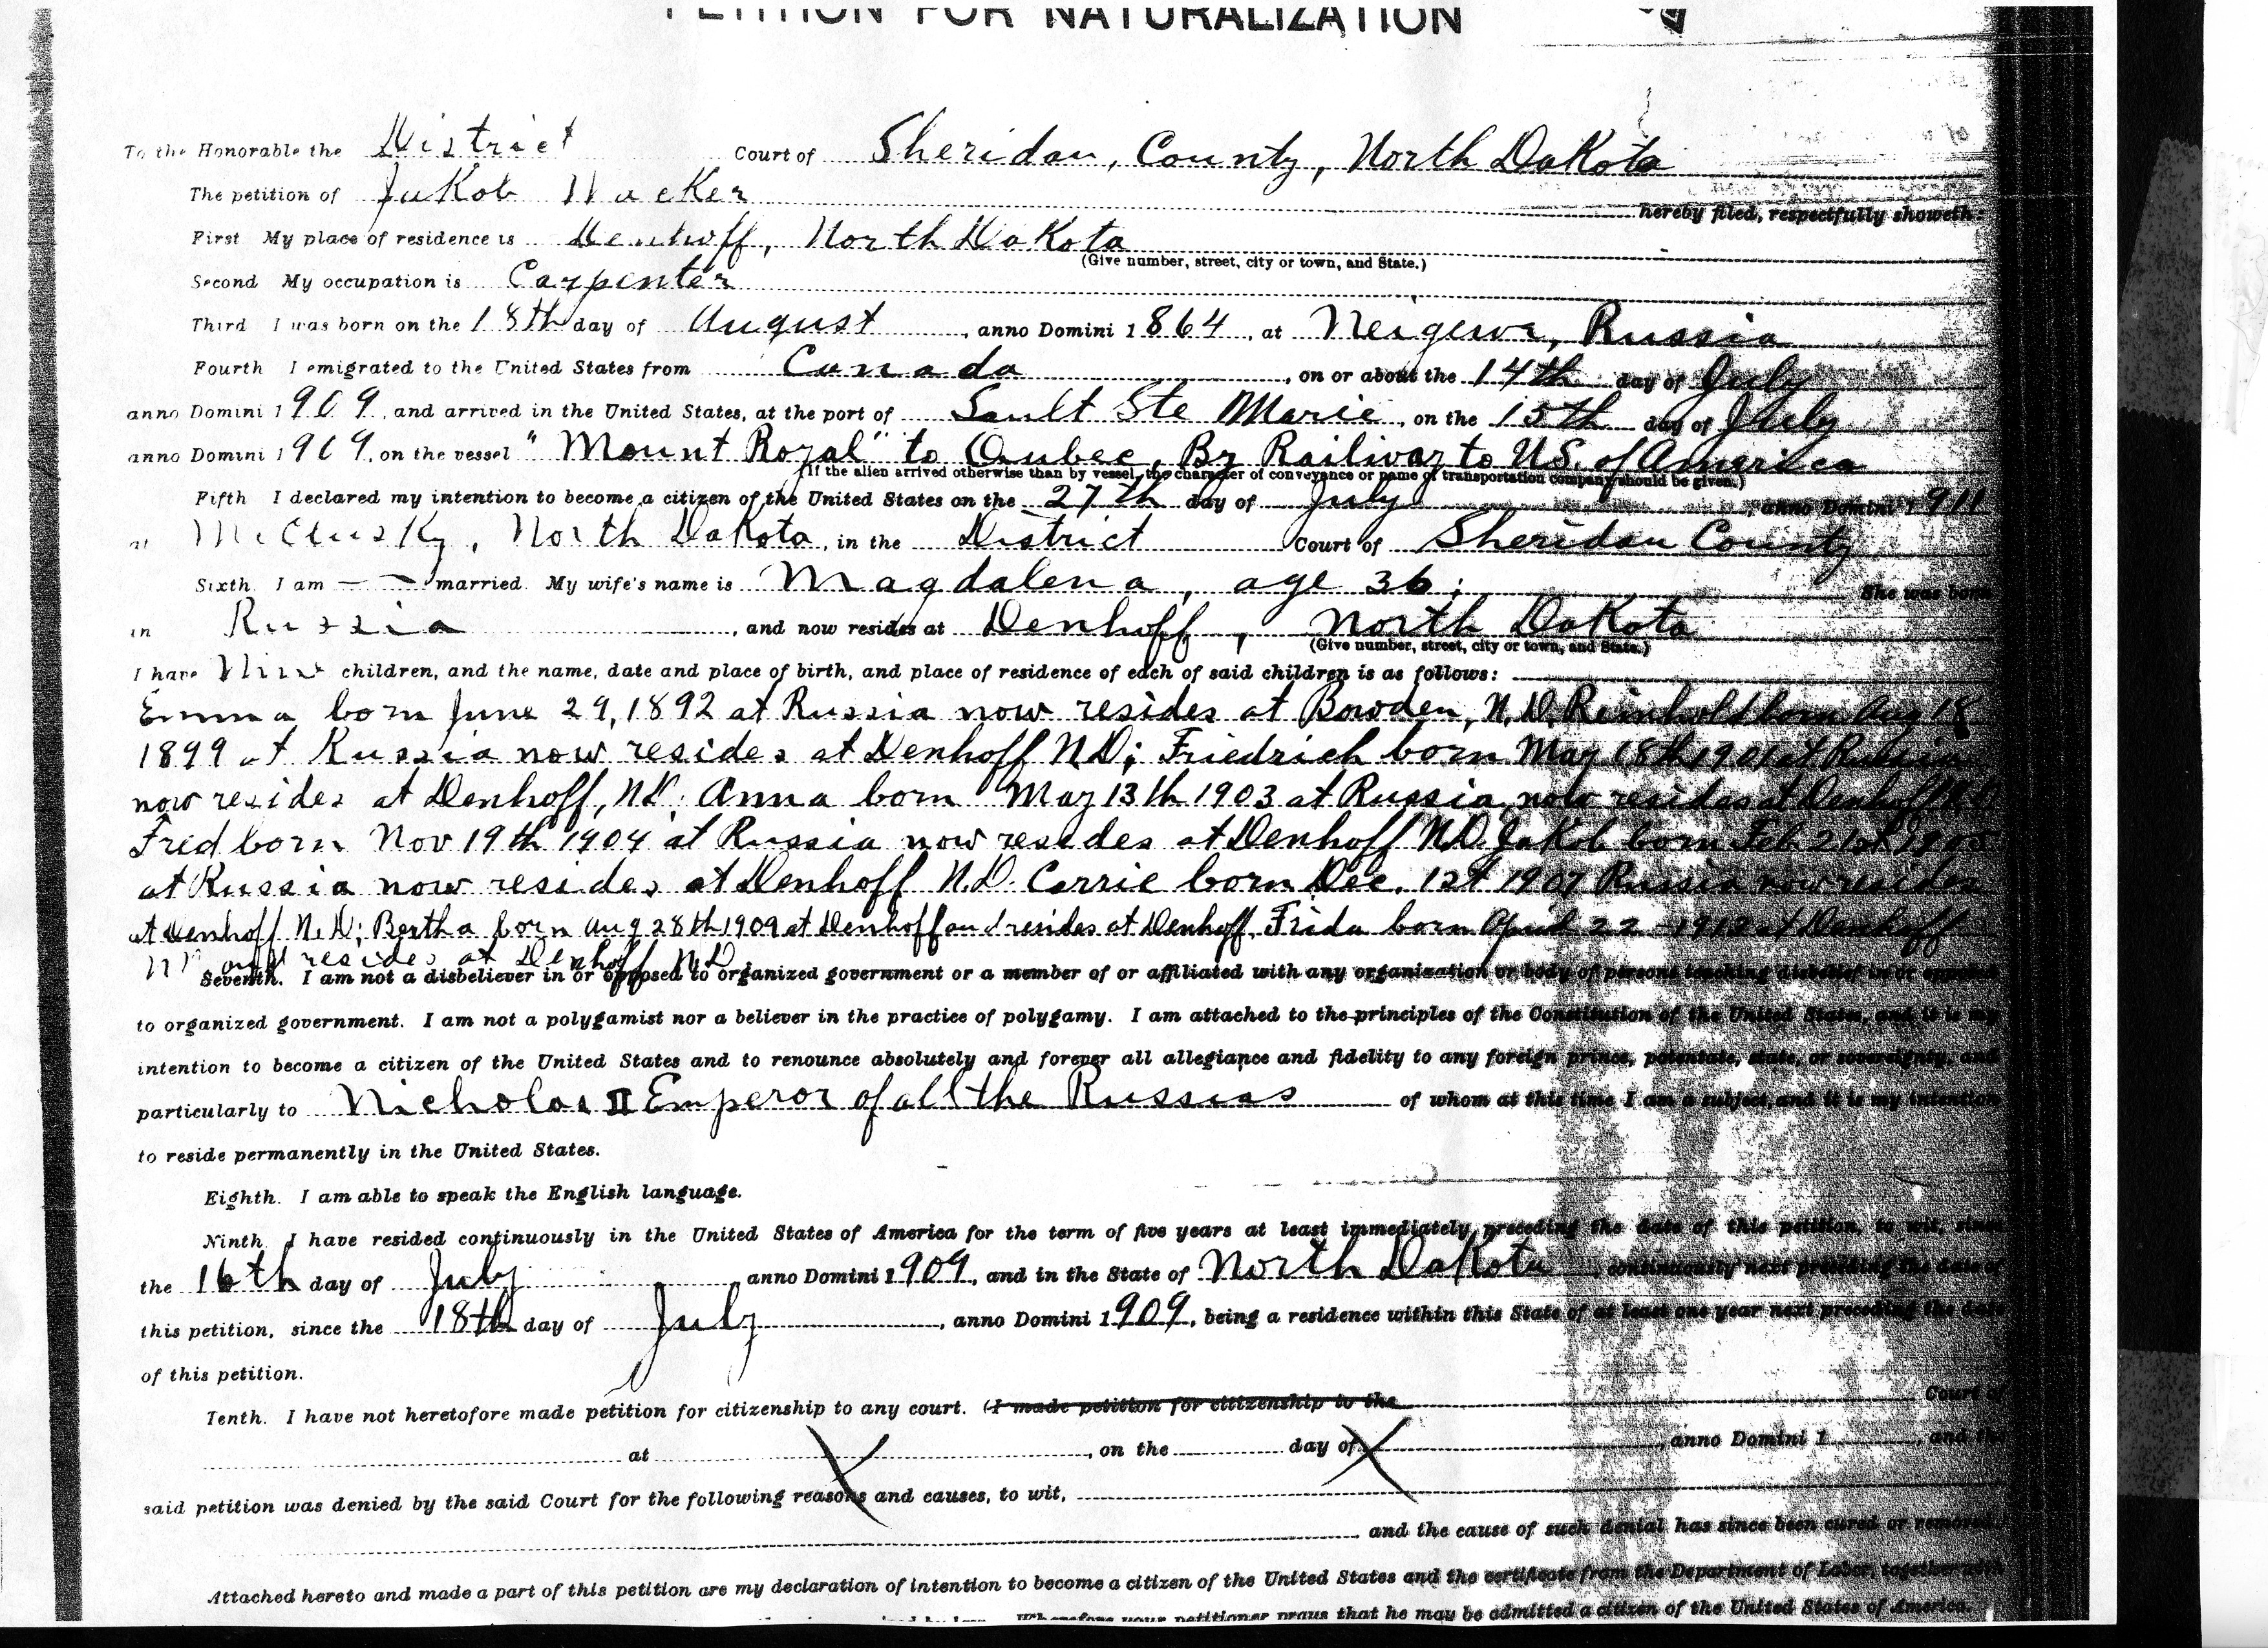 PETITION FOR NATURALIZATION
To the Honorable the District Court of Sheridan, County, North Dakota
The petition of Jakob Wacker hereby filed, respectfully showeth:
First My place of residence is Denhoff, North Dakota
(Give number, street, city or town, and State.)
Second My occupation is Carpenter
Third I was born on the 18th day of August, anno Domini 1864, at Russia
Fourth I emigrated to the United States from Canada, on or about the 14th day of July
anno Domini 1909, and arrived in the United States, at the port of Sault Ste Marie, on the 15th day of July
anno Domini 1909, on the vessel "Mount Royal" to Qubec, By Railway to U.S. of America
(If the alien arrived otherwise than by vessel, the character of conveyance or name of transportation company should be given.)
Fifth I declared my intention to become a citizen of the United States on the 27th day of July, anno Domini 1911
at McClusky, North Dakota, in the District Court of Sheridan County
Sixth. I am married. My wife's name is Magdalena, age 36; She was born
in Russia, and now resides at Denhoff, North Dakota
(Give number, street, city or town, and State.)
I have Nine children, and the name, date and place of birth, and place of residence of each of said children is as follows:
Emma born June 29, 1892 at Russia now resides at Bowden, N.D. Reinhold born Aug 18
1899 at Russia now resides at Denhoff N.D; Friedrich born May 18th 1901 at Russia
now resides at Denhoff, N.D. Anna born May 13th 1903 at Russia now resides at Denhoff N.D.
Fred born Nov 19th 1904 at Russia now resides at Denhoff N.D. Jakob born Feb 21st
at Russia now resides at Denhoff N.D. Carrie born Dec. 1st 1907 Russia now resides
at Denhoff N.D; Bertha born Aug 28th 1909 at Denhoff and resides at Denhoff. Frida born April 22 at Denhoff
ND and resides at Denhoff N.D.
Seventh. I am not a disbeliever in or opposed to organized government or a member of or affiliated with any organization or body of persons teaching disbelief in or opposed
to organized government. I am not a polygamist nor a believer in the practice of polygamy. I am attached to the principles of the Constitution of the United States, and it is my
intention to become a citizen of the United States and to renounce absolutely and forever all allegiance and fidelity to any foreign prince, potentate, state, or sovereignty, and
particularly to Nicholas II Emperor of all the Russias of whom at this time I am a subject, and it is my intention
to reside permanently in the United States.
Eighth. I am able to speak the English language.
Ninth. I have resided continuously in the United States of America for the term of five years at least immediately preceding the date of this petition, to wit, since
the 16th day of July anno Domini 1909, and in the State of North Dakota, continuously next preceding the date of
this petition, since the 18th day of July, anno Domini 1909, being a residence within this State of at least one year next preceding the date
of this petition.
Tenth. I have not heretofore made petition for citizenship to any court. (I made petition for citizenship to the Court of
at, on the day of, anno Domini 1, and the
said petition was denied by the said Court for the following reasons and causes, to wit,
and the cause of such denial has since been cured or removed.
Attached hereto and made a part of this petition are my declaration of intention to become a citizen of the United States and the certificate from the Department of Labor, together with
Wherefore your petitioner prays that he may be admitted a citizen of the United States of America.